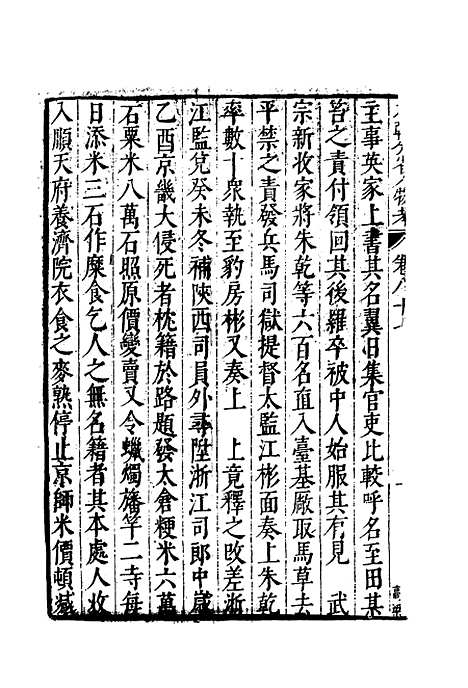 主事英家上書其名翼日集官吏比較呼名至田某
笞之責付領回其後羅卒被中人始服其有見　武
宗新收家將朱乾等六百名直入臺基厰取馬草去
平禁之責發兵馬司獄提督太監江彬面奏上朱乾
率數十衆執至豹房彬又奏上　上竟釋之改差浙
江監兌癸未冬補陜西司員外尋陞浙江司郎中歲
乙酉京畿大侵死者枕籍於路題發太倉粳米六萬
石粟米八萬石照原價變賣又令蠟燭旛竿二寺每
日添米三石作糜食乞人之無名籍者其本處人收
入順天府養濟院衣食之麥熟停止京師米價頓減